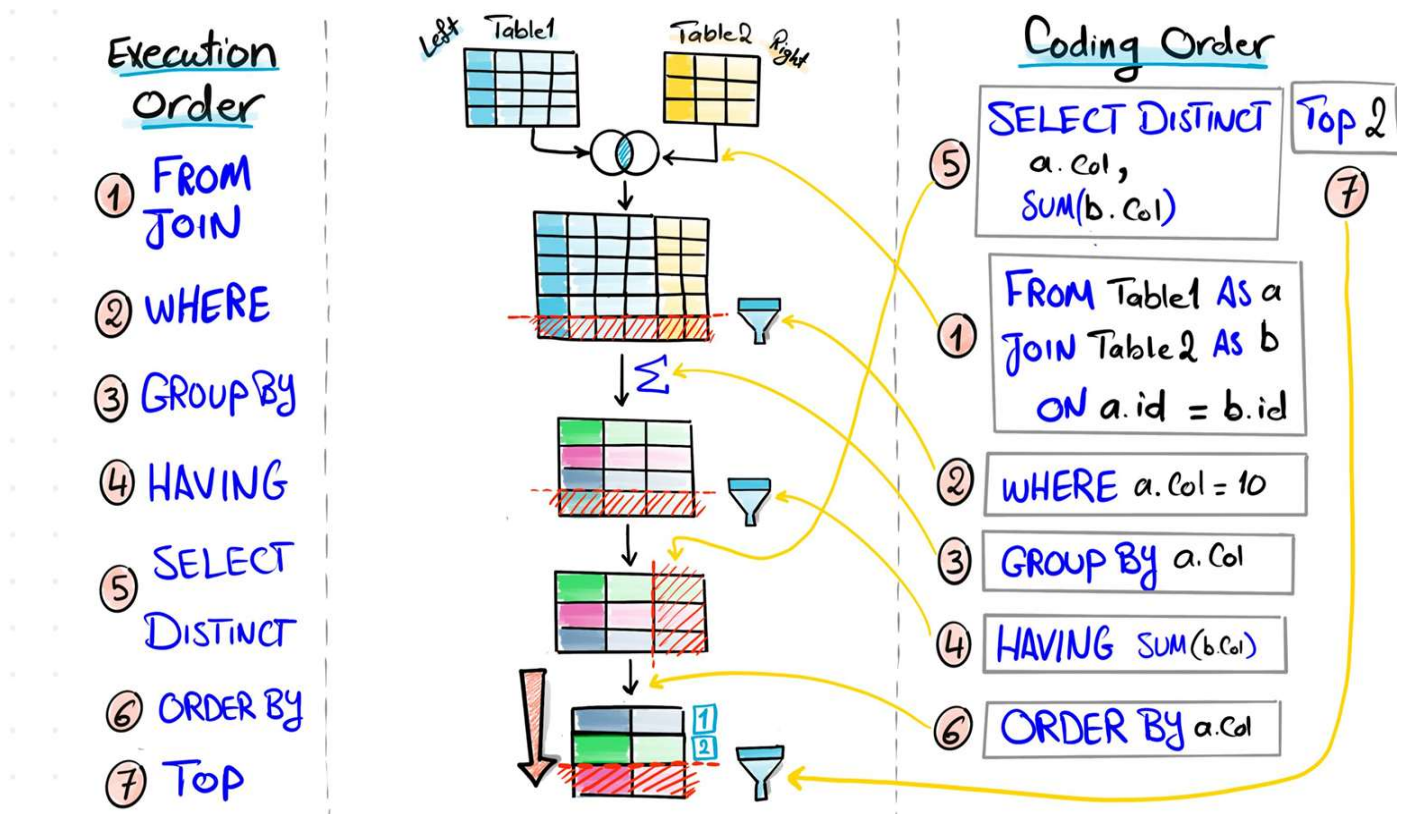 Execution
Order
1 FROM
JOIN
2 WHERE
3 GROUP BY
4 HAVING
5 SELECT
DISTINCT
6 ORDER BY
7 TOP
Left Table1
Table2 Right
Σ
1
2
Coding Order
SELECT DISTINCT
a.Col,
SUM(b.Col)
5
TOP 2
7
FROM Table1 AS a
JOIN Table2 AS b
ON a.id = b.id
1
2 WHERE a.Col = 10
3 GROUP BY a.Col
4 HAVING SUM(b.Col)
6 ORDER BY a.Col